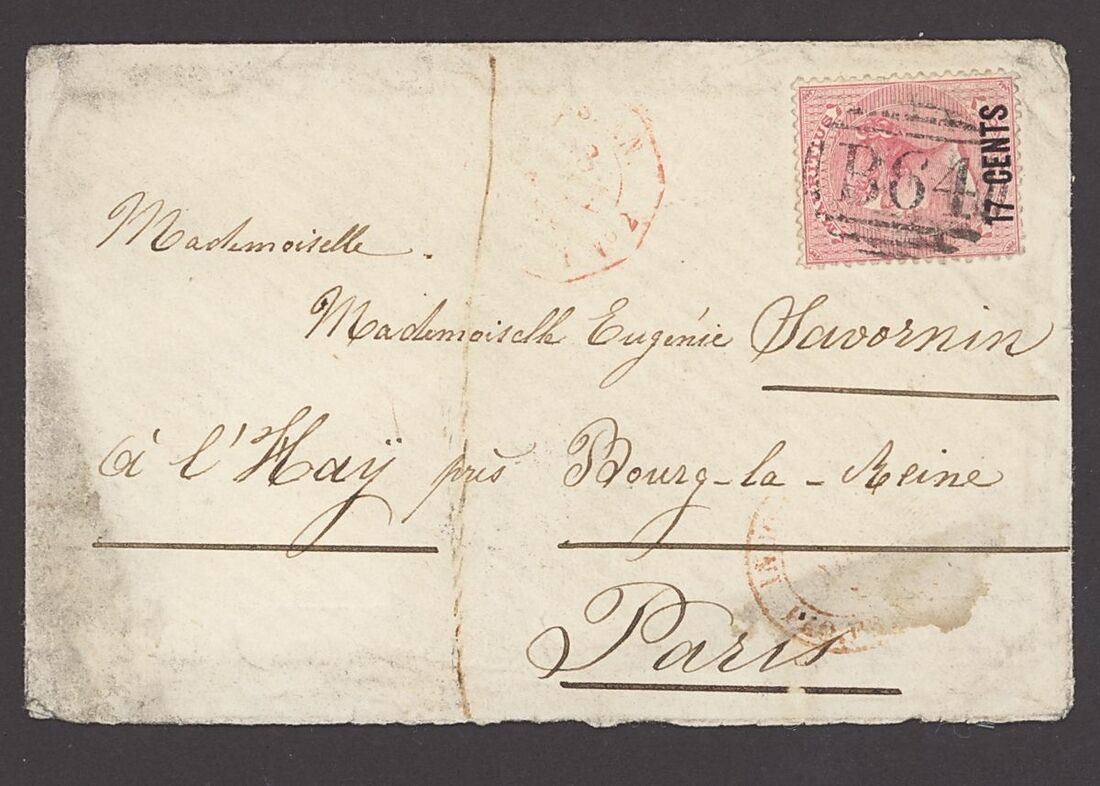 MAURITIUS
B64
17 CENTS
Mademoiselle.
Mademoiselle Eugénie Savornin
à l'Haÿ près Bourg-la-Reine
Paris